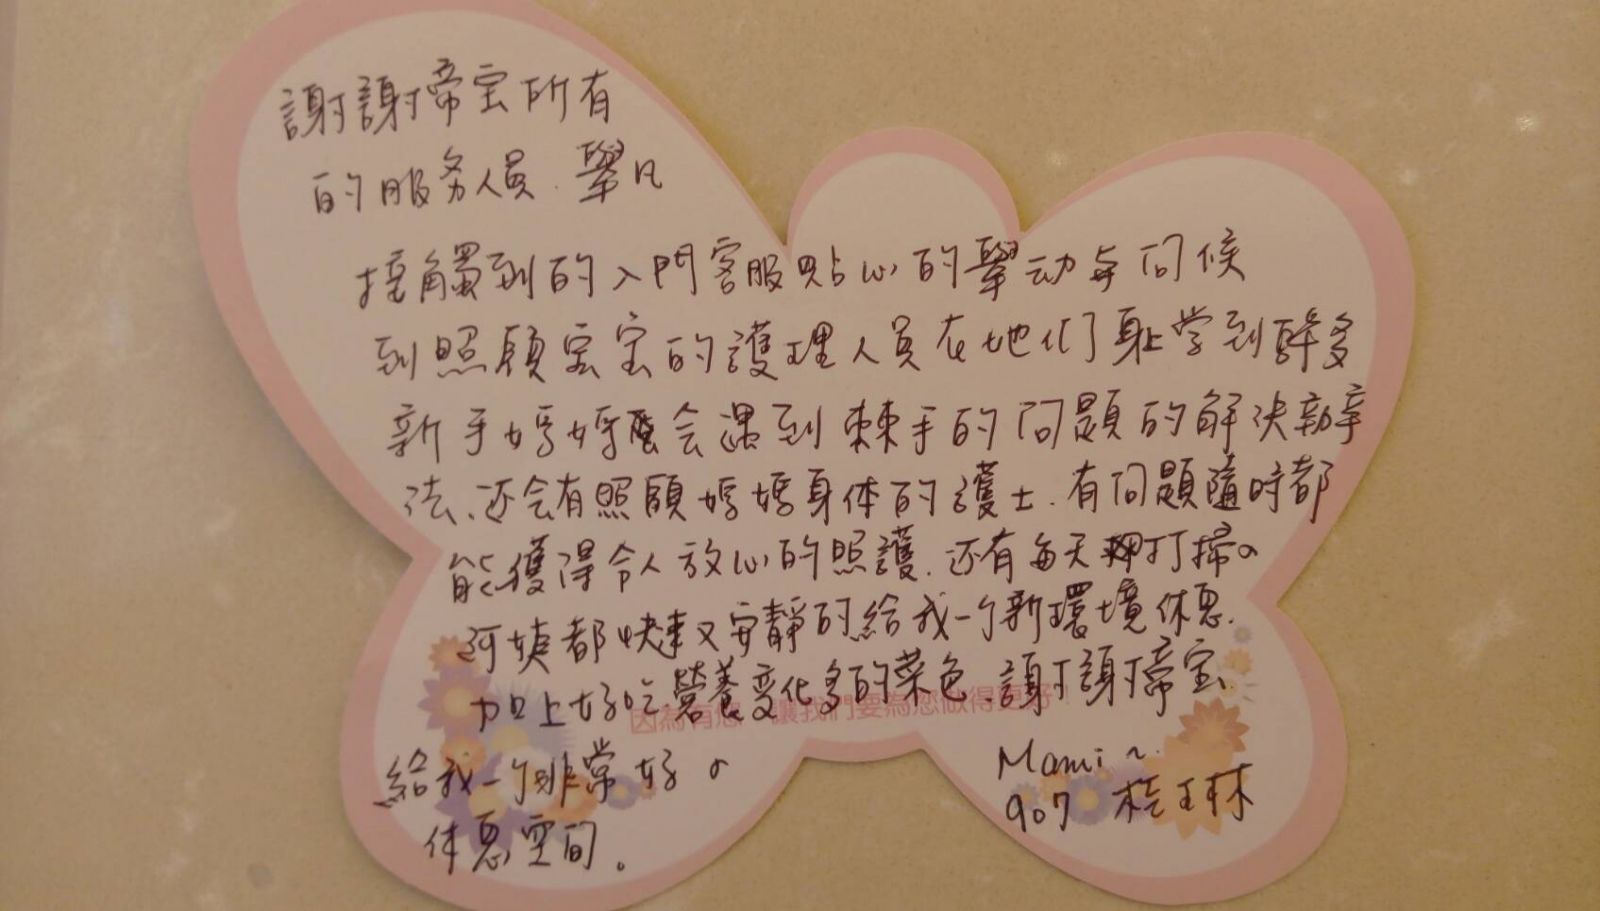 謝謝帝宝所有
的服务人員.舉凡
接觸到的入門客服貼心的舉动与问候
到照顧宝宝的護理人員在她们身上学到許多
新手媽媽会遇到棘手的问題的解決辦
法、还会有照顧媽媽身体的護士.有问題隨時都
能獲得令人放心的照護.还有每天打掃の
阿姨都快速又安靜的給我一个新環境休息.
加上好吃.營養变化多的菜色.謝謝帝宝.
因為有您，讓我們要為您做得更好！
給我一个非常好の
休息空间。
Mami~.
907 桂琳